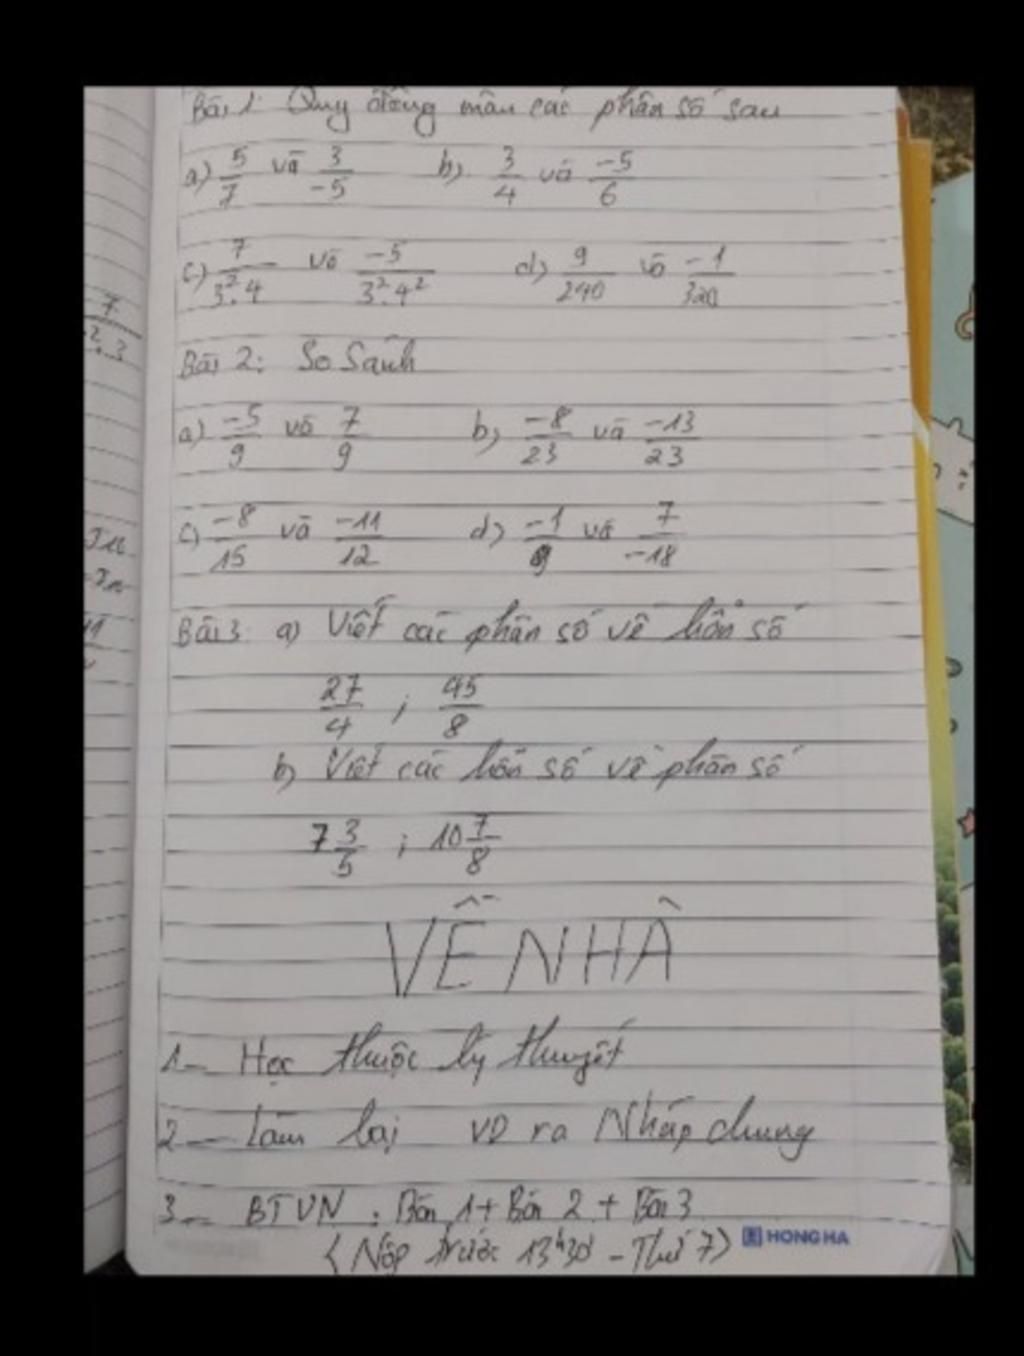 Bài 1: Quy đồng mẫu các phân số sau
a) 5/7 và 3/-5 b) 3/4 và -5/6
c) 7/3².4 và -5/3².4² d) 9/240 và -1/320
Bài 2: So Sánh
a) -5/9 và 7/9 b) -8/23 và -13/23
c) -8/15 và -11/12 d) -1/9 và 7/-18
Bài 3: a) Viết các phân số về hỗn số
27/4 ; 45/8
b) Viết các hỗn số về phân số
7 3/5 ; 10 7/8
VỀ NHÀ
1 - Học thuộc lý thuyết
2 - Làm lại VD ra Nháp chung
3 - BTVN : Bài 1 + Bài 2 + Bài 3
(Nộp trước 13h30' - Thứ 7)
HONG HA